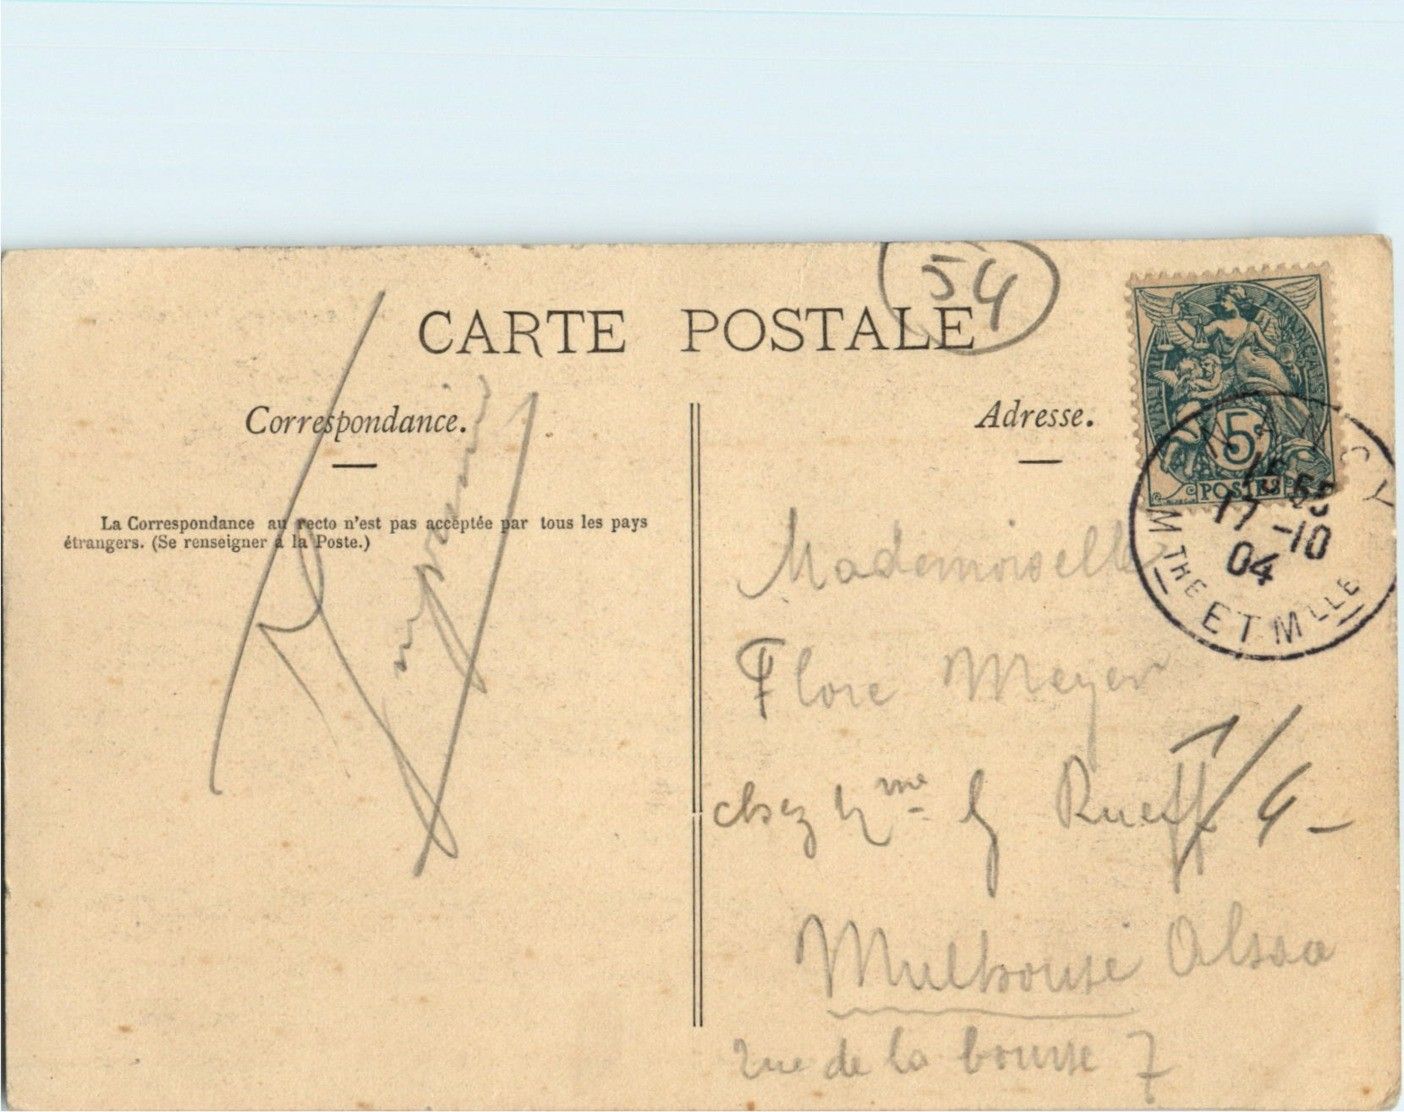 54
CARTE POSTALE
Correspondance.
La Correspondance au recto n'est pas acceptée par tous les pays
étrangers. (Se renseigner à la Poste.)
Adresse.
RÉPUBLIQUE FRANÇAISE
5
POSTES
NANCY
17 -10
04
M THE ET M LLE
Mademoiselle
Flore Meyer
chez Mme G Rueff
Mulhouse Alsace
rue de la bourse 7